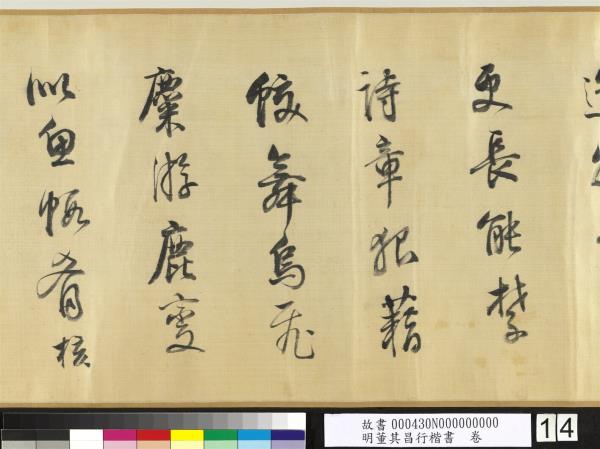 更長能
詩章狼藉
舞烏飛
麋游鹿変
似魚肴核
故書 000430N000000000
明董其昌行楷書 卷
14